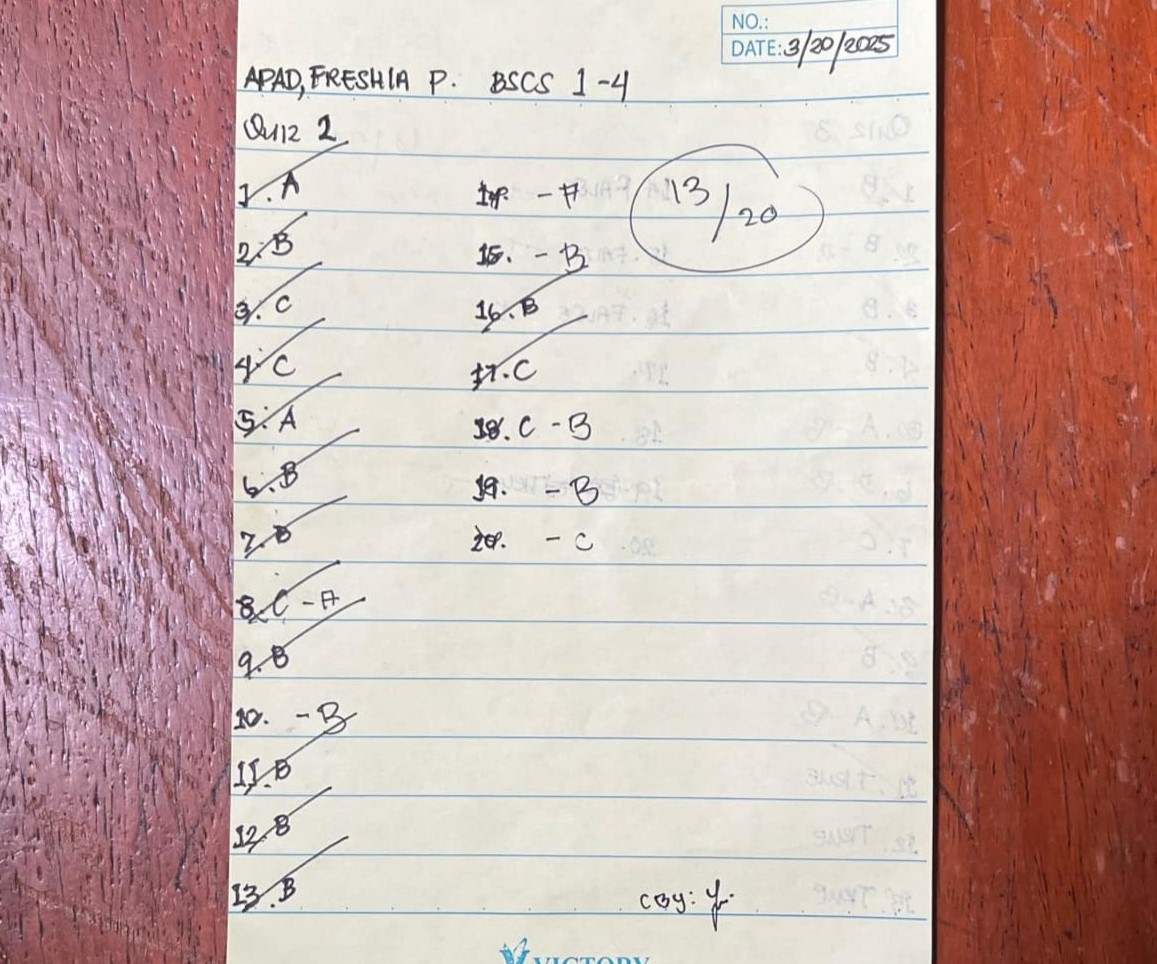 NO.:
DATE: 3/20/2025
APAD, FRESHIA P. BSCS 1-4
QUIZ 2
1. A
2. B
3. C
4. C
5. A
6. B
7. B
8. C - A
9. B
10. - B
11. B
12. B
13. B
14. - A
15. - B
16. B
17. C
18. C - B
19. - B
20. - C
13/20
CBy:
VICTORY